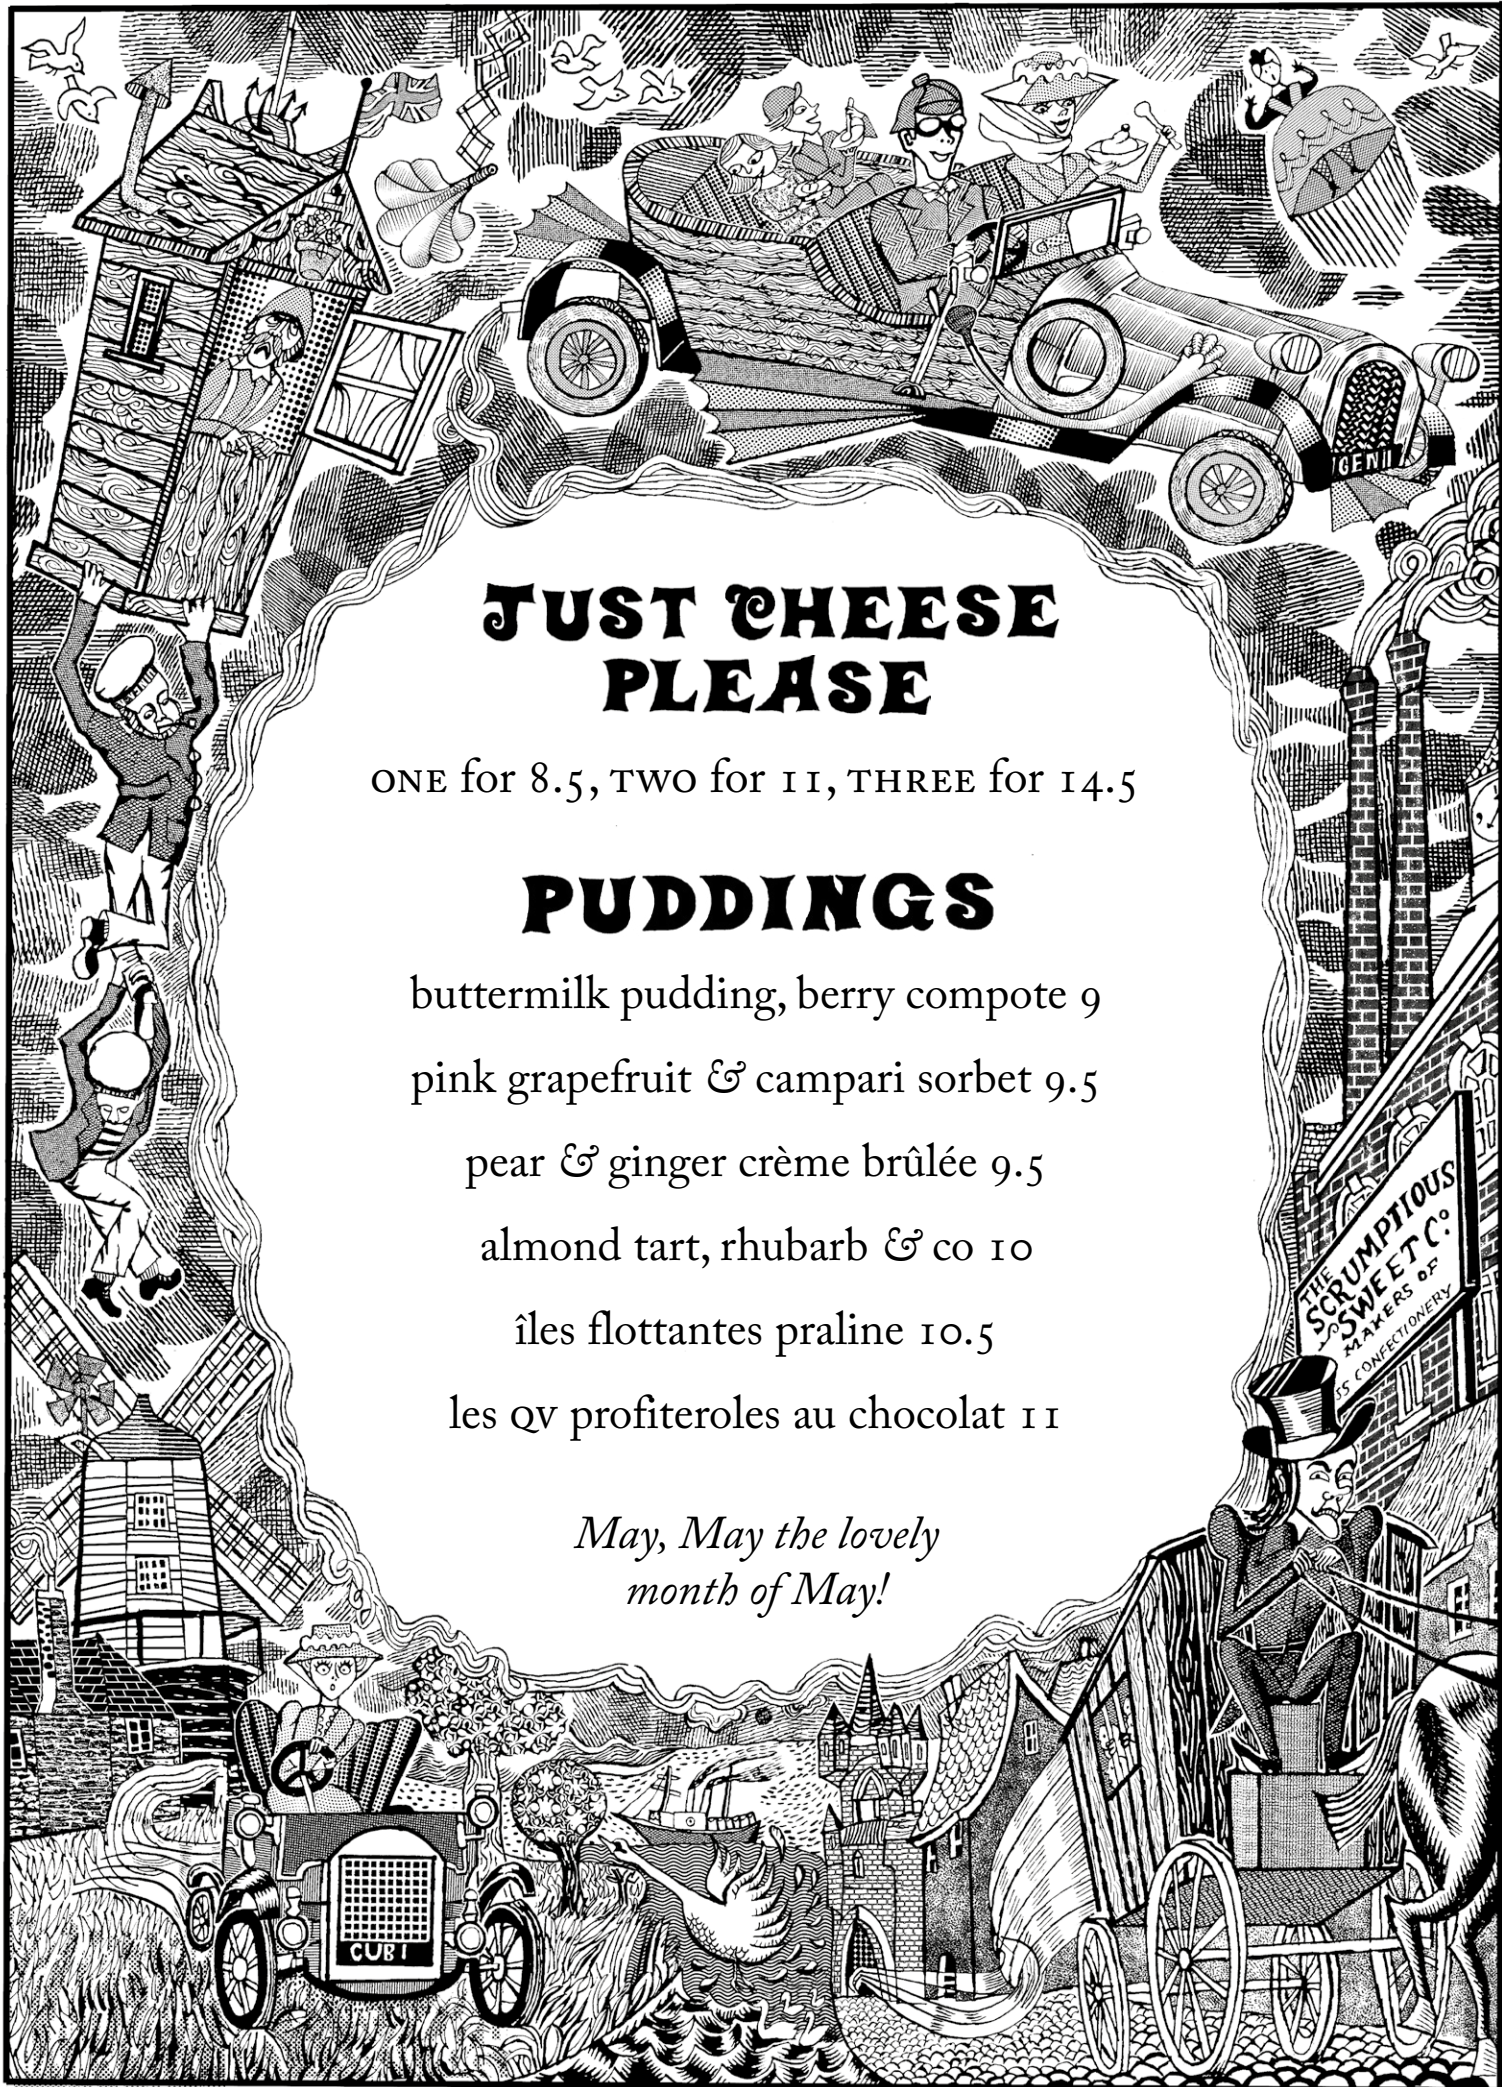 GEN11
JUST CHEESE
PLEASE
ONE for 8.5, TWO for 11, THREE for 14.5
PUDDINGS
buttermilk pudding, berry compote 9
pink grapefruit & campari sorbet 9.5
pear & ginger crème brûlée 9.5
almond tart, rhubarb & co 10
îles flottantes praline 10.5
les QV profiteroles au chocolat 11
May, May the lovely
month of May!
THE
SCRUMPTIOUS
SWEET Co.
MAKERS OF
CONFECTIONERY
CUB 1